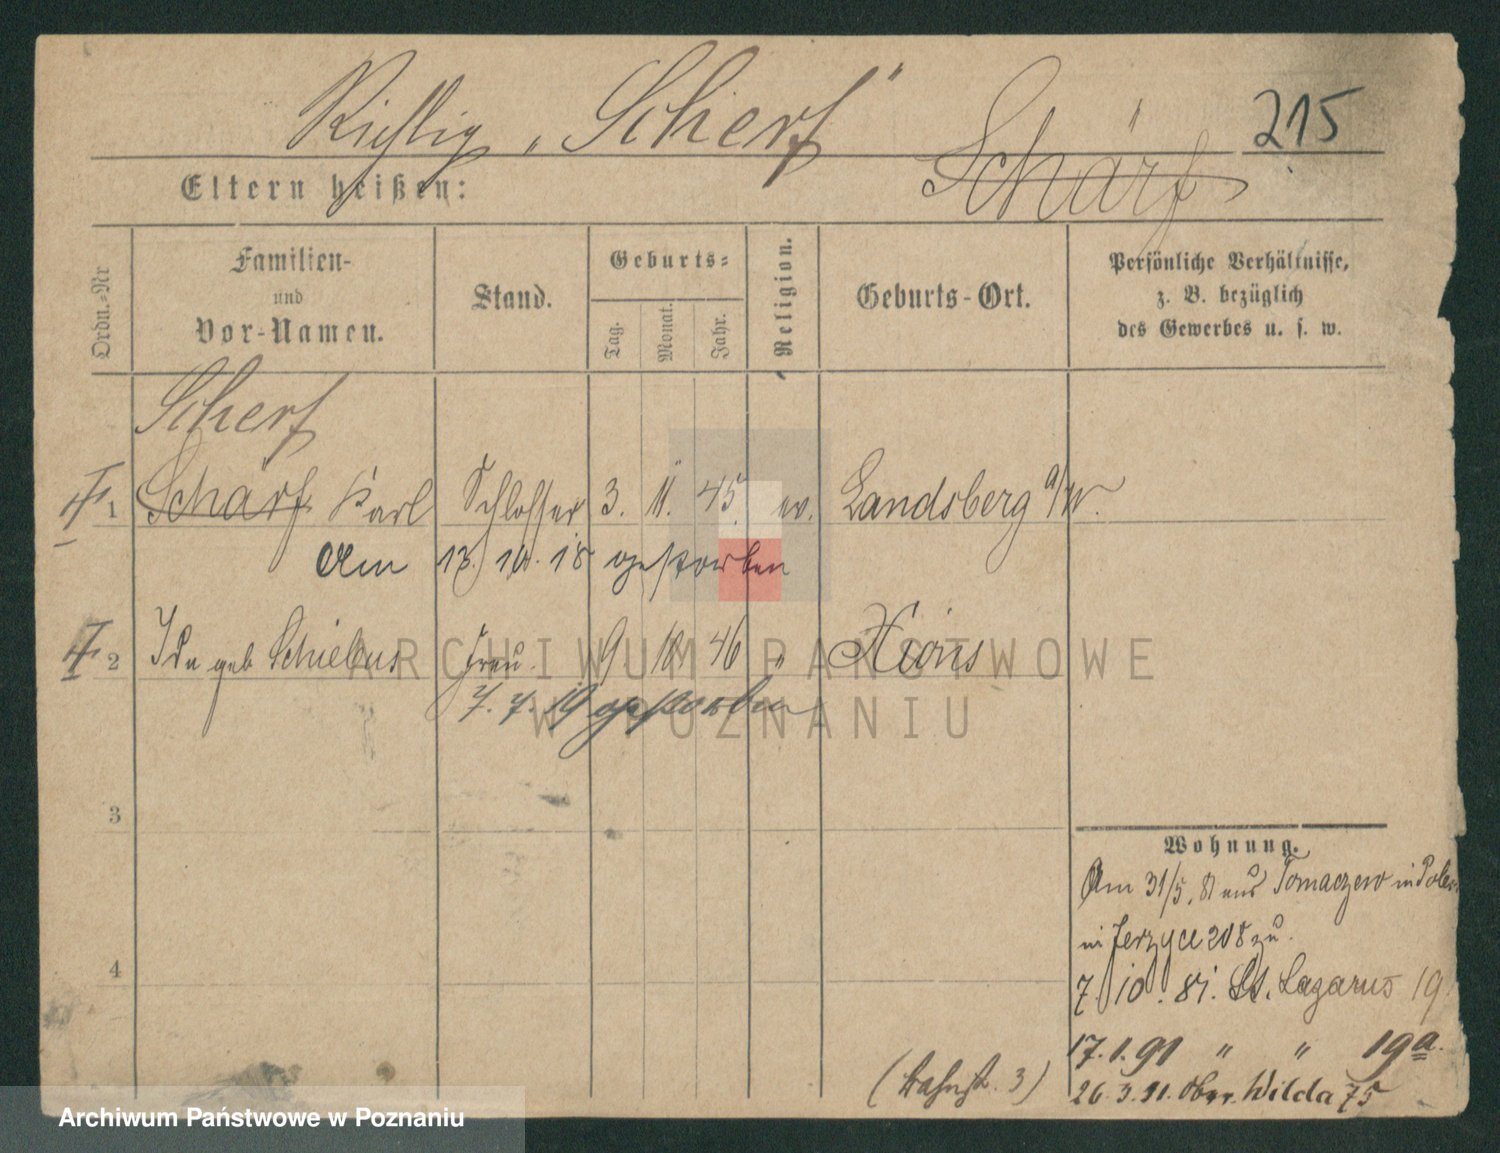 Richtig „Scherf"
Schärf
215
Eltern heißen:
Ordn.-Nr
Familien-
und
Vor-Namen.
Stand.
Geburts-
Tag.
Monat.
Jahr.
Religion.
Geburts-Ort.
Persönliche Verhältnisse,
z. B. bezüglich
des Gewerbes u. s. w.
Scherf
1 Schärf Karl Schlosser 3. 11. 45. ev. Landsberg a/W.
Am 13. 10. 18 gestorben
2 Ida geb Schiebus Frau. 9. 10. 46 " Xions
7. 7. 19 gestorben
ARCHIWUM PAŃSTWOWE
W POZNANIU
3
4
Wohnung.
Am 31/5. 81 aus Tomaczewo in Polen
in Jerzyce 208 zu.
7. 10. 81. St. Lazarus 19
17. 1. 91 " " 19a.
26. 3. 91. Ober-Wilda 75
(Bahnst. 3)
Archiwum Państwowe w Poznaniu